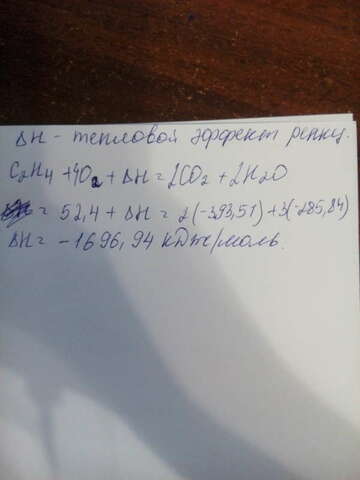 ΔH - тепловой эффект реакц.
C₂H₄ + 4O₂ + ΔH = 2CO₂ + 2H₂O
= 52,4 + ΔH = 2(-393,51) + 3(-285,84)
ΔH = -1696,94 кДж/моль.